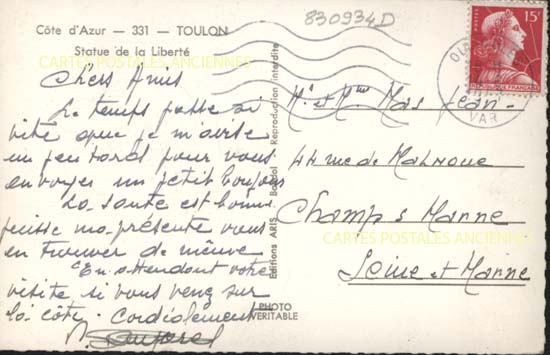 Côte d'Azur — 331 — TOULON
Statue de la Liberté
830934D
15F
REPUBLIQUE FRANÇAISE
VAR
CARTES POSTALES ANCIENNES
Chers Amis
Le temps passe si
vite que je m'avise
un peu tard pour vous
envoyer un petit bonjour
La santé est bonne
puisse ma présente vous
en trouver de même.
En attendant votre
visite si vous venez sur
la côte. Cordialement
Editions ARIS Bandol Reproduction interdite
PHOTO
VERITABLE
Mr et Mme Mas Jean
44 rue de Malnoue
Champs s Marne
CARTES POSTALES ANCIENNES
Seine et Marne